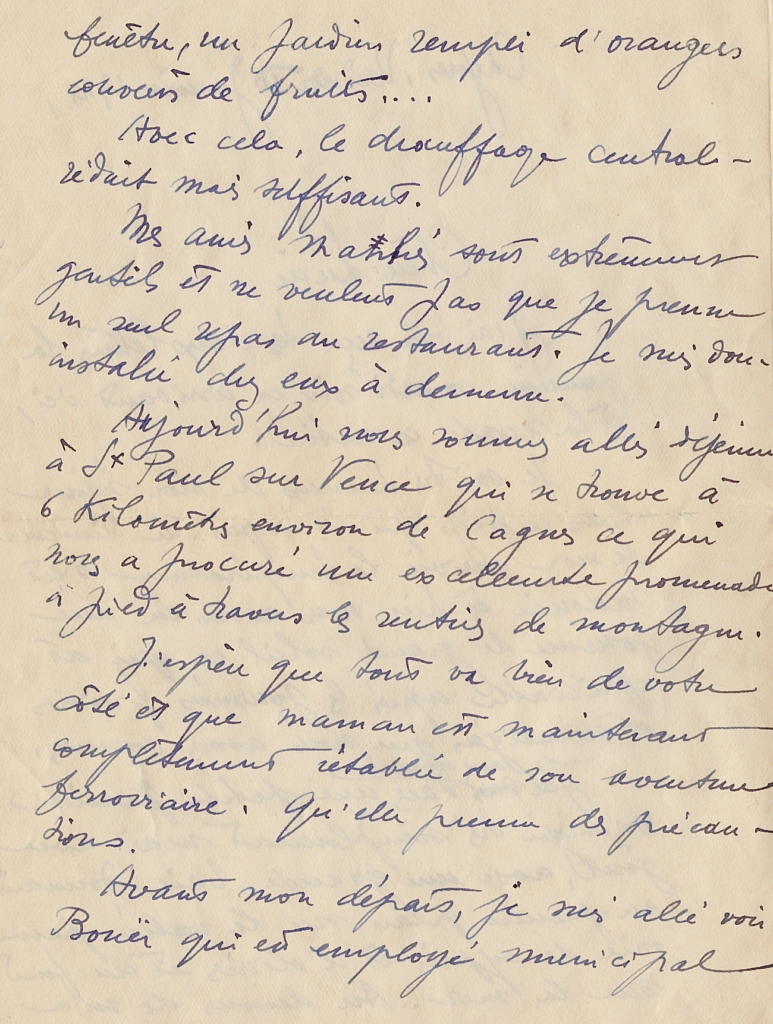 fenêtre, un jardin rempli d'orangers
couverts de fruits....
Avec cela, le chauffage central -
réduit mais suffisant.
Mes amis sont extrêmement
gentils et ne veulent pas que je prenne
un seul repas au restaurant. Je suis donc
installé chez eux à demeure.
Aujourd'hui nous sommes allés déjeuner
à St Paul sur Vence qui se trouve à
6 Kilomètres environ de Cagnes ce qui
nous a procuré une excellente promenade
à pied à travers les sentiers de montagne.
J'espère que tout va bien de votre
côté et que maman est maintenant
complètement rétablie de son aventure
ferroviaire. Qu'elle prenne des précau-
tions.
Avant mon départ, je suis allé voir
qui est employé municipal